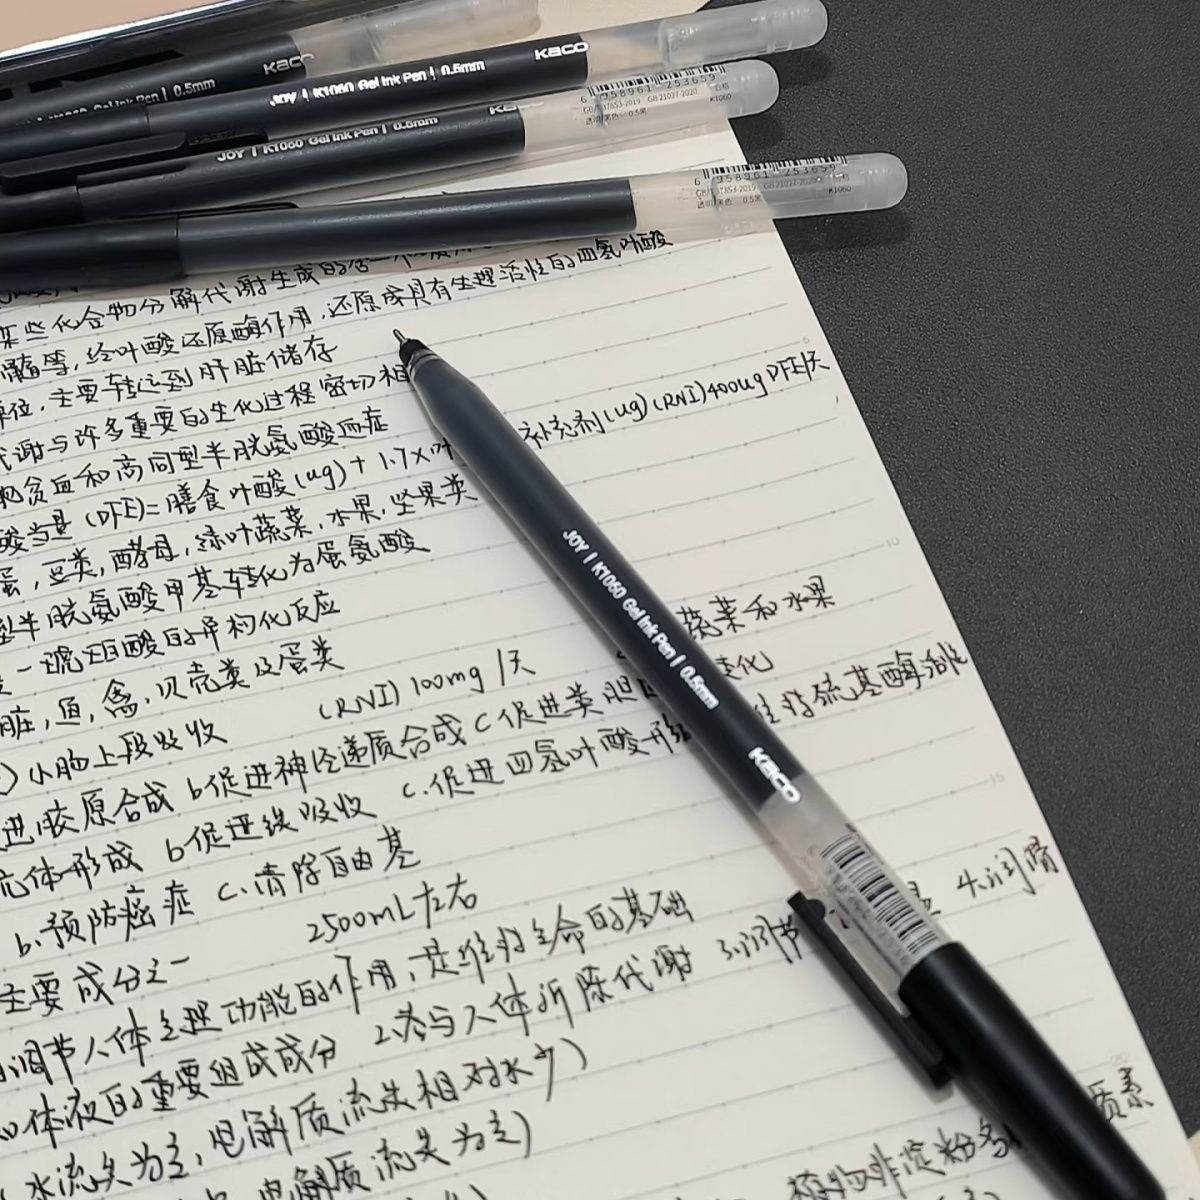 Gel Ink Pen | 0.5mm
KACO
JOY | K1060 Gel Ink Pen | 0.5mm
KACO
6 958961 253659
GB/T 37853-2019 GB 21027-2020
K1060
透明黑色 0.5米
JOY | K1060 Gel Ink Pen | 0.5mm
6 958961 253659
GB/T 37853-2019 GB 21027-2020
K1060
透明黑色 0.5米
某些化合物分解代谢生成的含一个
髓等,经叶酸还原酶作用,还原成具有生理活性的四氢叶酸
位,主要转运到肝脏储存
代谢与许多重要的生化过程密切相
贫血和高同型半胱氨酸血症
酸当量(DFE)=膳食叶酸(ug)+1.7×叶 补充剂(ug)(RNI)400ug DFE/天
蛋,豆类,酵母,绿叶蔬菜,水果,坚果类
型半胱氨酸甲基转化为蛋氨酸
一琥珀酸的异构化反应
脏,鱼,禽,贝壳类及蛋类
小肠上段吸收 (RNI)100mg/天 蔬菜和水果
进胶原合成 b促进神经递质合成 c促进类胆 转化
抗体形成 b促进铁吸收 c.促进四氢叶酸形 巯基酶活性
b.预防癌症 c.清除自由基
主要成分之一 2500mL左右
调节人体生理功能的作用,是维持生命的基础
体液的重要组成成分 2.参与人体新陈代谢 3.调节 4.润滑
水流失为主,电解质流失相对少)
电解质流失为主)
植物非淀粉多 质素
JOY | K1060 Gel Ink Pen | 0.5mm
KACO
5
10
15
20